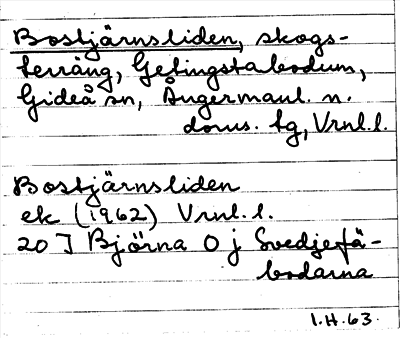 Bostjärnsliden, skogs-
terräng, Getingstabodum,
Gideå sn, Ångermanl. n.
doms. tg, Vrnl. l.
Bostjärnsliden
ek (1962) Vrnl. l.
20 J Björna 0 j Svedjefä-
bodarna
I.H.63.